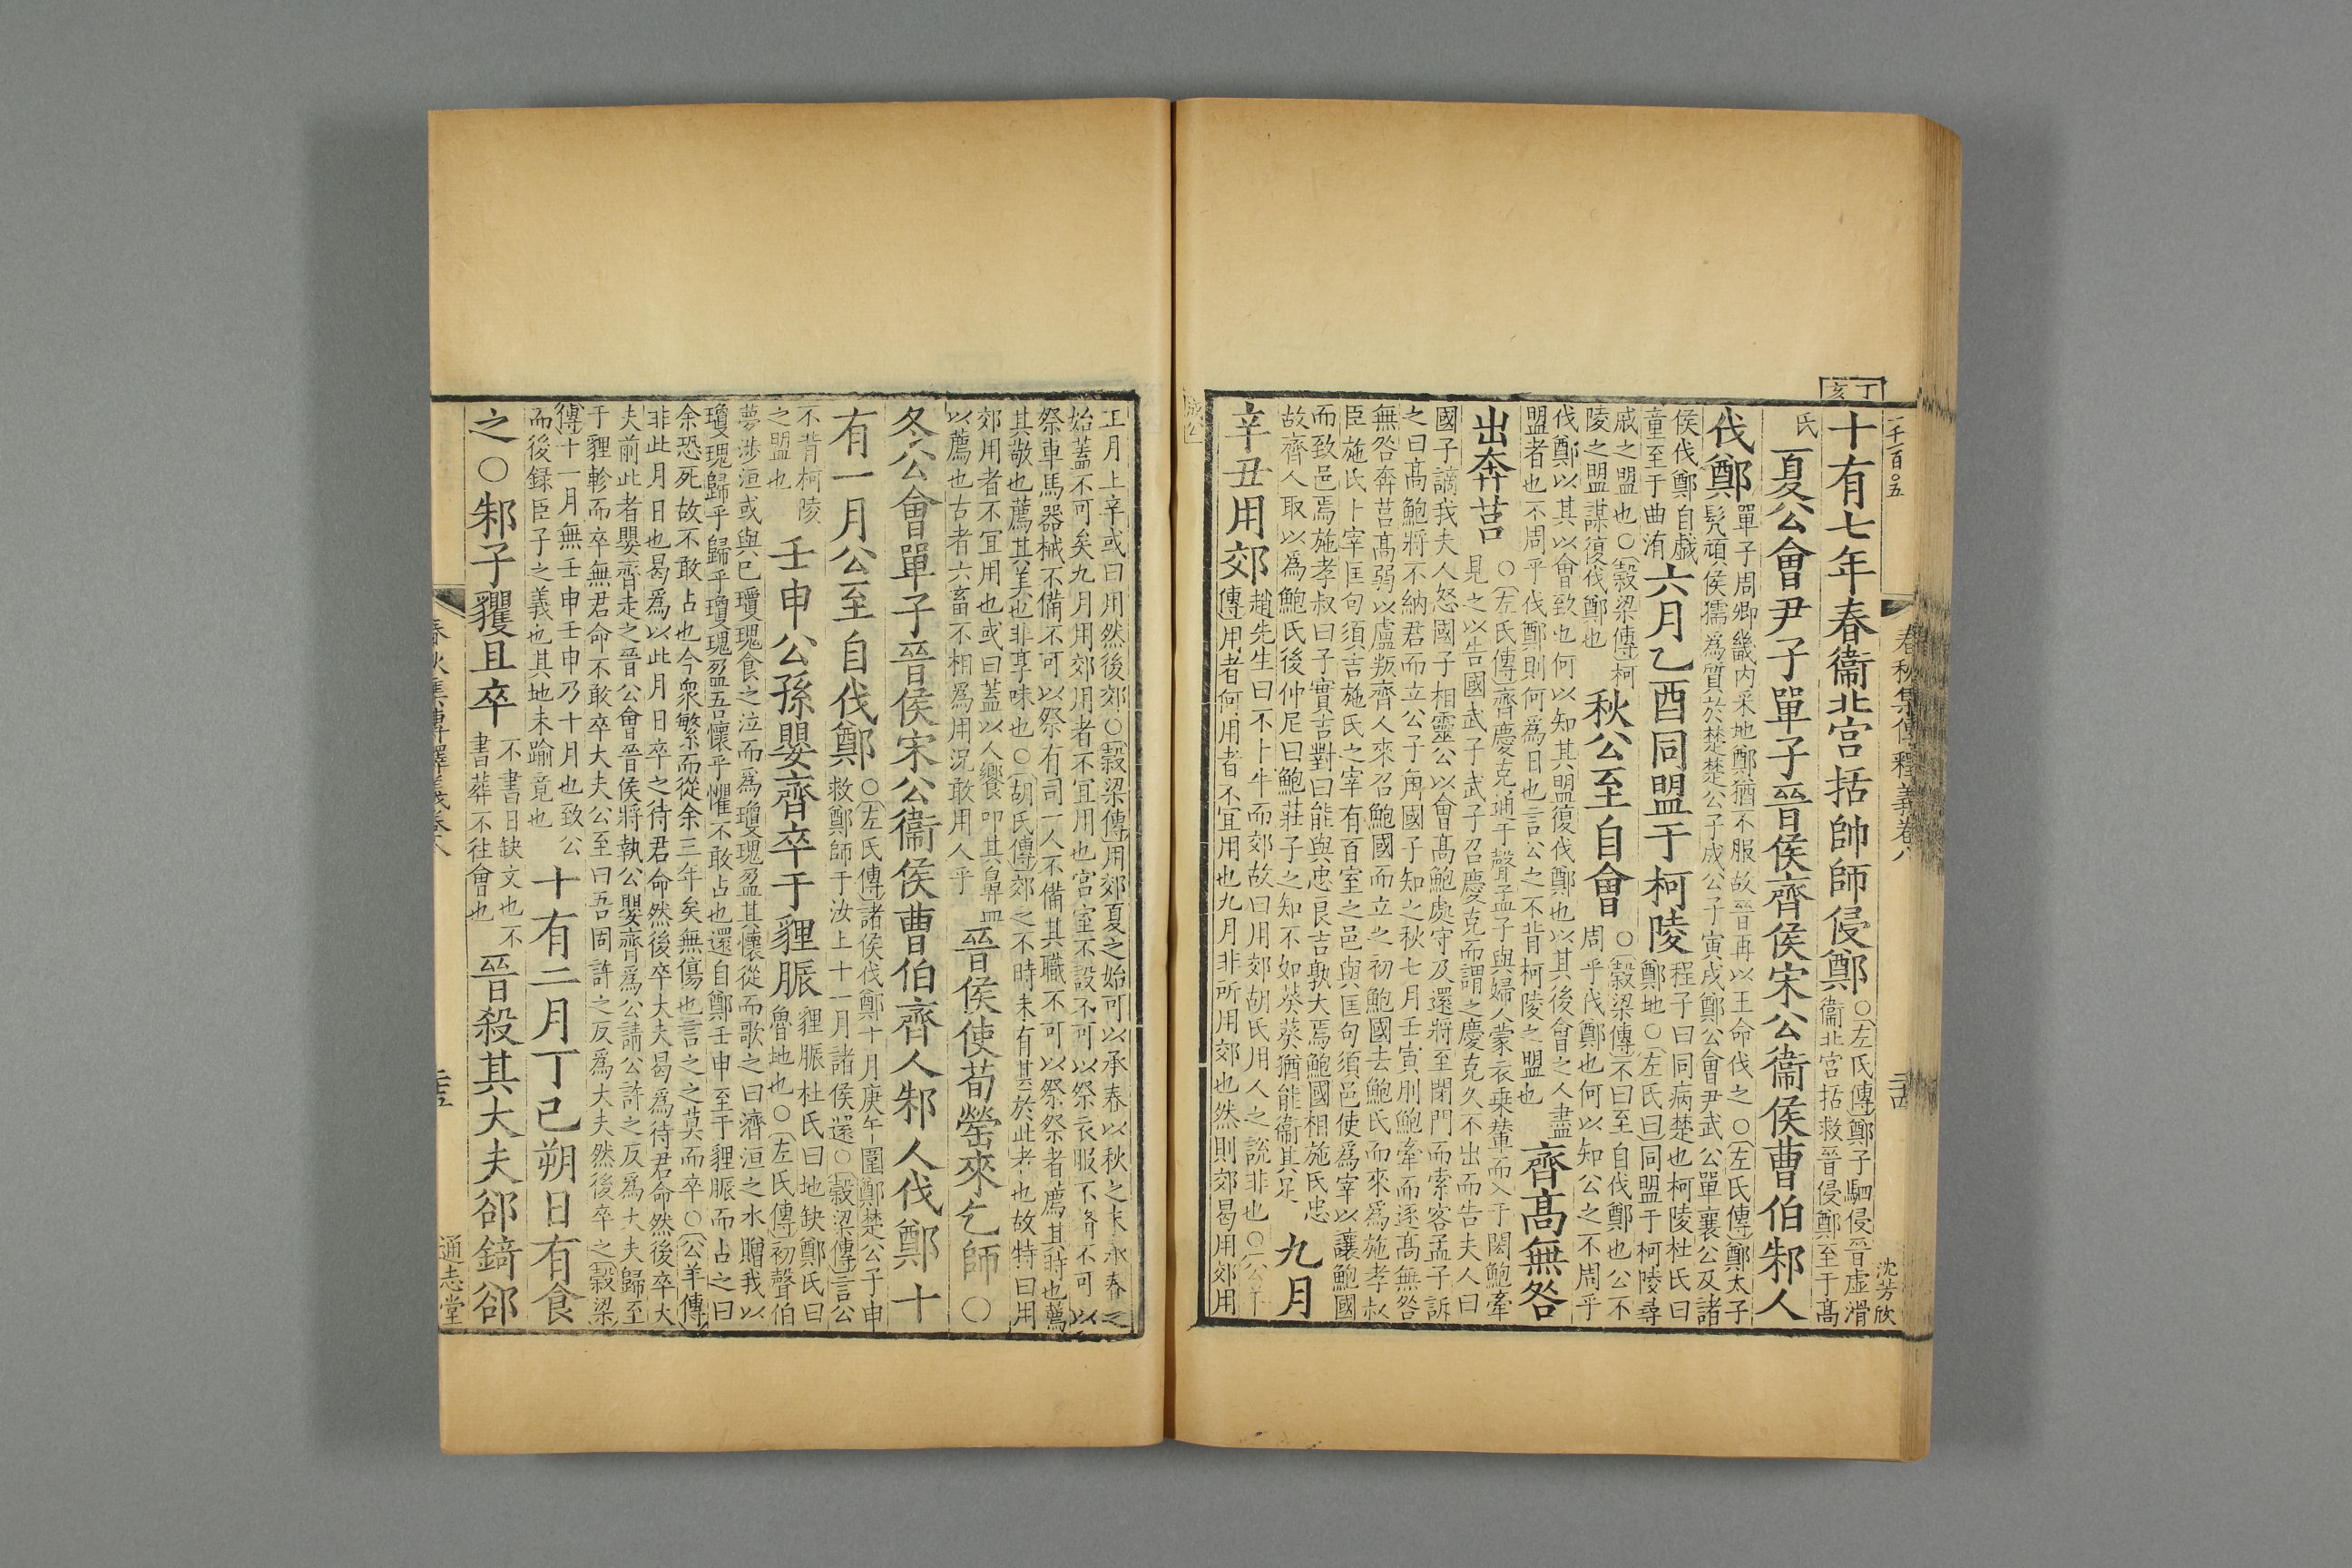 丁亥
一千一百〇五
春秋集傳釋義卷八
沈芳欣
十有七年春衞北宫括帥師侵鄭
〇左氏傳鄭子駟侵晉虚滑
衞北宫括救晉侵鄭至于髙
氏
夏公會尹子單子晉侯齊侯宋公衞侯曹伯邾人
伐鄭
單子周卿畿内采地鄭猶不服故晉再以王命伐之〇左氏傳鄭太子
髠頑侯獳爲質於楚楚公子成公子寅戍鄭公會尹武公單襄公及諸
侯伐鄭自戯
童至于曲洧
六月乙酉同盟于柯陵
程子曰同病楚也柯陵杜氏曰
鄭地〇左氏曰同盟于柯陵尋
戚之盟也〇穀梁傳柯
陵之盟謀復伐鄭也
秋公至自會
〇穀梁傳不曰至自伐鄭也公不
周乎伐鄭也何以知公之不周乎
伐鄭以其以會致也何以知其盟復伐鄭也以其後會之人盡
盟者也不周乎伐鄭則何爲日也言公之不背柯陵之盟也
齊髙無咎
出奔莒
〇左氏傳齊慶克通于聲孟子與婦人蒙衣乗輦而入于閎鮑牽
見之以告國武子武子召慶克而謂之慶克久不出而告夫人曰
國子謫我夫人怒國子相靈公以會髙鮑處守及還將至閉門而索客孟子訴
之曰髙鮑將不納君而立公子角國子知之秋七月壬寅刖鮑牽而逐髙無咎
無咎奔莒髙弱以盧叛齊人來召鮑國而立之初鮑國去鮑氏而來爲施孝叔
臣施氏卜宰匡句須吉施氏之宰有百室之邑與匡句須邑使爲宰以讓鮑國
而致邑焉施孝叔曰子實吉對曰能與忠良吉孰大焉鮑國相施氏忠
故齊人取以爲鮑氏後仲尼曰鮑莊子之知不如葵葵猶能衞其足
九月
辛丑用郊
趙先生曰不卜牛而郊故曰用郊胡氏用人之説非也〇公羊
傳用者何用者不宜用也九月非所用郊也然則郊曷用郊用
正月上辛或曰用然後郊〇穀梁傳用郊夏之始可以承春以秋之末承春之
始蓋不可矣九月用郊用者不宜用也宫室不設不可以祭衣服不脩不可以
祭車馬器械不備不可以祭有司一人不備其職不可以祭祭者薦其時也薦
其敬也薦其美也非享味也〇胡氏傳郊之不時未有甚於此者也故特曰用
郊用者不宜用也或曰蓋以人饗叩其鼻血
以薦也古者六畜不相爲用況敢用人乎
晉侯使荀罃來乞師〇
冬公會單子晉侯宋公衞侯曹伯齊人邾人伐鄭十
有一月公至自伐鄭
〇左氏傳諸侯伐鄭十月庚午圍鄭楚公子申
救鄭師于汝上十一月諸侯還〇穀梁傳言公
不背柯陵
之盟也
壬申公孫嬰齊卒于貍脤
貍脤杜氏曰地缺鄭氏曰
魯地也〇左氏傳初聲伯
夢涉洹或與已瓊瑰食之泣而爲瓊瑰盈其懷從而歌之曰濟洹之水贈我以
瓊瑰歸乎歸乎瓊瑰盈吾懷乎懼不敢占也還自鄭壬申至于貍脤而占之曰
余恐死故不敢占也今衆繁而從余三年矣無傷也言之之莫而卒〇公羊傳
非此月日也曷爲以此月日卒之待君命然後卒大夫曷爲待君命然後卒大
夫前此者嬰齊走之晉公會晉侯將執公嬰齊爲公請公許之反爲大夫歸至
于貍軫而卒無君命不敢卒大夫公至曰吾固許之反爲大夫然後卒之穀梁
傳十一月無壬申壬申乃十月也致公
而後録臣子之義也其地未踰竟也
十有二月丁已朔日有食
之〇邾子貜且卒
不書日缺文也不
書葬不往會也
晉殺其大夫郤錡郤
通志堂